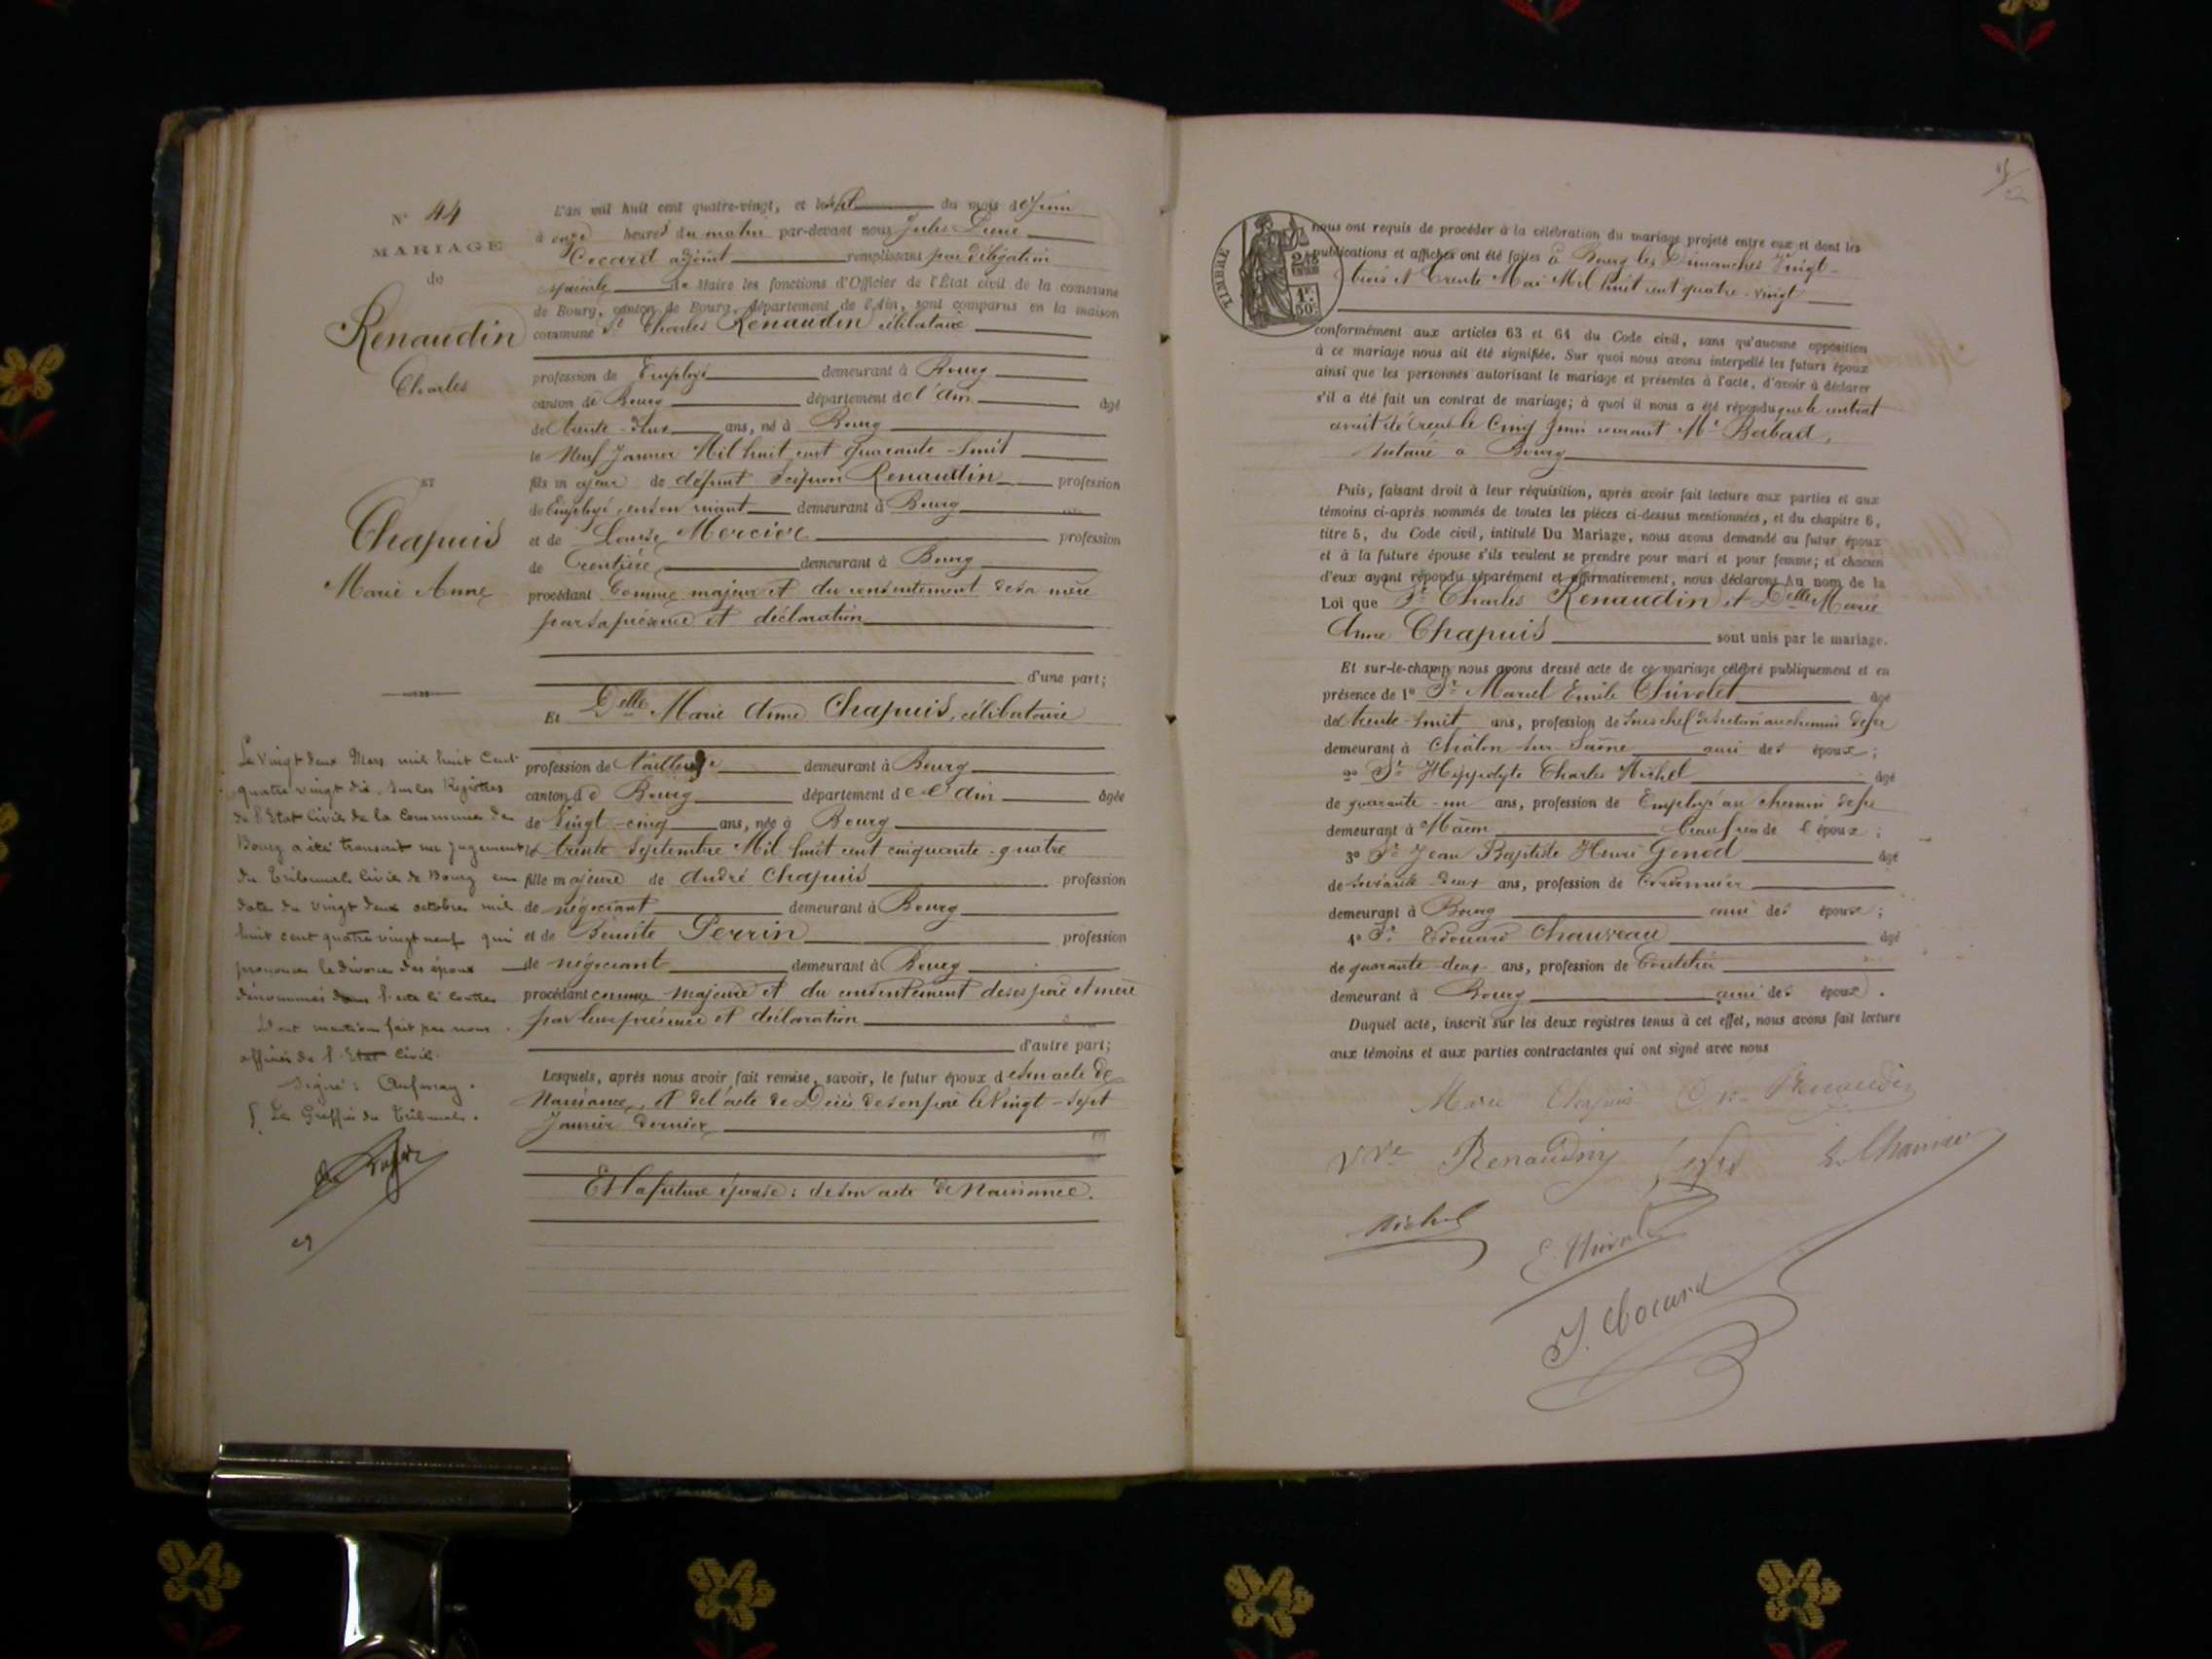 N° 44
MARIAGE
de
Renaudin
Charles
ET
Chapuis
Marie Anne
Le vingt deux Mars mil huit Cent
quatre vingt dix, sur les Registres
de l'Etat Civil de la Commune de
Bourg a été transcrit un jugement
du Tribunal Civil de Bourg en
date du vingt deux octobre mil
huit cent quatre vingt neuf qui
prononce le divorce des époux
dénommés dans l'acte ci contre
Dont mention fait par nous
officier de l'Etat Civil.
Signé:
Le Greffier du Tribunal.
L'an mil huit cent quatre-vingt, et le sept du mois de Juin
à onze heures du matin par-devant nous Jules Pierre
Cocard adjoint remplissant par délégation
spéciale de Maire les fonctions d'Officier de l'État civil de la commune
de Bourg, canton de Bourg, département de l'Ain, sont comparus en la maison
commune Sr Charles Renaudin célibataire
profession de Employé demeurant à Bourg
canton de Bourg département de l'Ain âgé
de trente-deux ans, né à Bourg
le Neuf Janvier Mil huit cent quarante-huit
fils majeur de défunt Scipion Renaudin profession
de Employé, en son vivant demeurant à Bourg
et de Louise Mercier profession
de rentière demeurant à Bourg
procédant Comme majeur et du consentement de sa mère
par sa présence et déclaration
d'une part;
Et Delle Marie Anne Chapuis, célibataire
profession de tailleuse demeurant à Bourg
canton de Bourg département de l'Ain âgée
de Vingt-cinq ans, née à Bourg
le trente Septembre Mil huit cent cinquante-quatre
fille majeure de André Chapuis profession
de négociant demeurant à Bourg
et de Benoite Perrin profession
de négociant demeurant à Bourg
procédant comme majeure et du consentement de ses père et mère
par leur présence et déclaration
d'autre part;
Lesquels, après nous avoir fait remise, savoir, le futur époux de son acte de
Naissance, et de l'acte de Décès de son père le Vingt-Sept
Janvier dernier
Et la future épouse: de son acte de Naissance.
TIMBRE
1F. 50c
nous ont requis de procéder à la célébration du mariage projeté entre eux et dont les
publications et affiches ont été faites à Bourg les Dimanches Vingt-
trois et trente Mai Mil huit cent quatre-vingt
conformément aux articles 63 et 64 du Code civil, sans qu'aucune opposition
à ce mariage nous ait été signifiée. Sur quoi nous avons interpellé les futurs époux
ainsi que les personnes autorisant le mariage et présentes à l'acte, d'avoir à déclarer
s'il a été fait un contrat de mariage; à quoi il nous a été répondu que le contrat
avait été reçu le Cinq Juin courant Me Babad,
Notaire à Bourg
Puis, faisant droit à leur réquisition, après avoir fait lecture aux parties et aux
témoins ci-après nommés de toutes les pièces ci-dessus mentionnées, et du chapitre 6,
titre 5, du Code civil, intitulé Du Mariage, nous avons demandé au futur époux
et à la future épouse s'ils veulent se prendre pour mari et pour femme; et chacun
d'eux ayant répondu séparément et affirmativement, nous déclarons au nom de la
Loi que Sr Charles Renaudin et Delle Marie
Anne Chapuis sont unis par le mariage.
Et sur-le-champ nous avons dressé acte de ce mariage célébré publiquement et en
présence de 1° Sr Marcel Emile Chivolet âgé
de trente-huit ans, profession de Sous chef de section au chemin de fer
demeurant à Châlon sur Saône ami des époux;
2° Sr Hippolyte Charles Michel âgé
de quarante-un ans, profession de Employé au chemin de fer
demeurant à Mâcon beau frère de l'époux;
3° Sr Jean Baptiste Henri Genod âgé
de soixante deux ans, profession de Cordonnier
demeurant à Bourg ami des époux;
4° Sr Edouard Chanreau âgé
de quarante-deux ans, profession de Coutelier
demeurant à Bourg ami des époux.
Duquel acte, inscrit sur les deux registres tenus à cet effet, nous avons fait lecture
aux témoins et aux parties contractantes qui ont signé avec nous
Marie Chapuis Ch. Renaudin
Vve Renaudin
Michel
J. Cocard